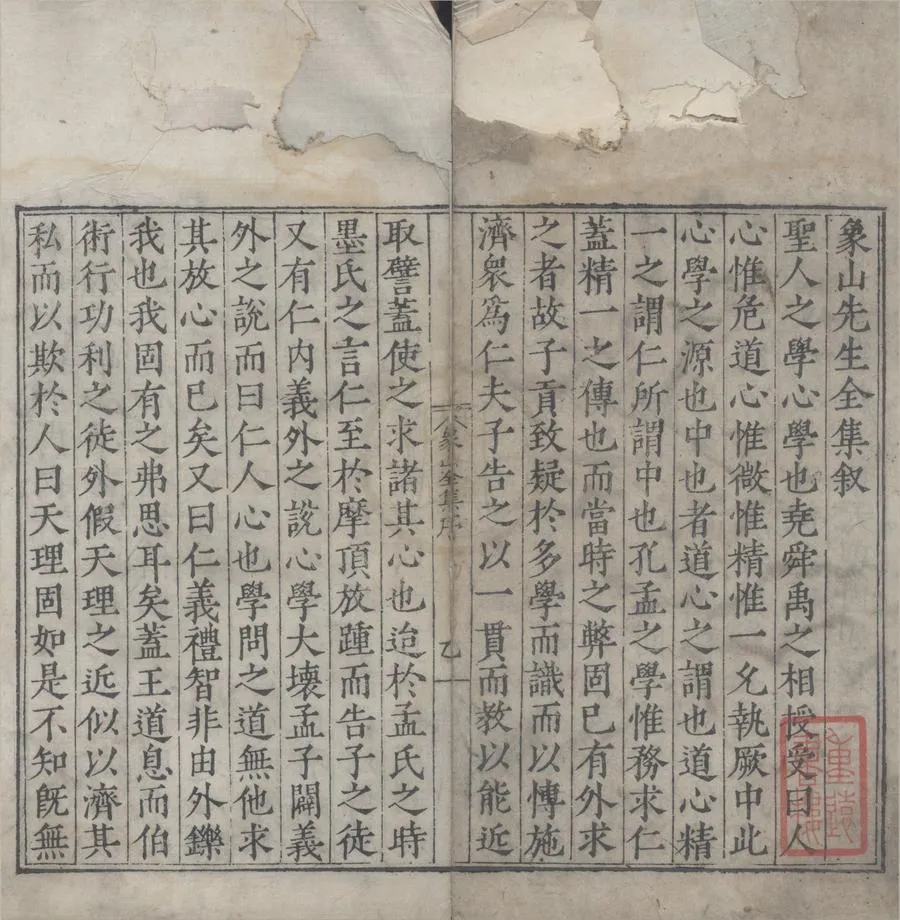 象山先生全集叙
聖人之學心學也堯舜禹之相授受曰人
心惟危道心惟微惟精惟一允執厥中此
心學之源也中也者道心之謂也道心精
一之謂仁所謂中也孔孟之學惟務求仁
蓋精一之傳也而當時之弊固已有外求
之者故子貢致疑於多學而識而以博施
濟衆爲仁夫子告之以一貫而教以能近
象山全集序
乙一
取譬蓋使之求諸其心也迨於孟氏之時
墨氏之言仁至於摩頂放踵而告子之徒
又有仁内義外之説心學大壞孟子闢義
外之説而曰仁人心也學問之道無他求
其放心而已矣又曰仁義禮智非由外鑠
我也我固有之弗思耳矣蓋王道息而伯
術行功利之徒外假天理之近似以濟其
私而以欺於人曰天理固如是不知旣無